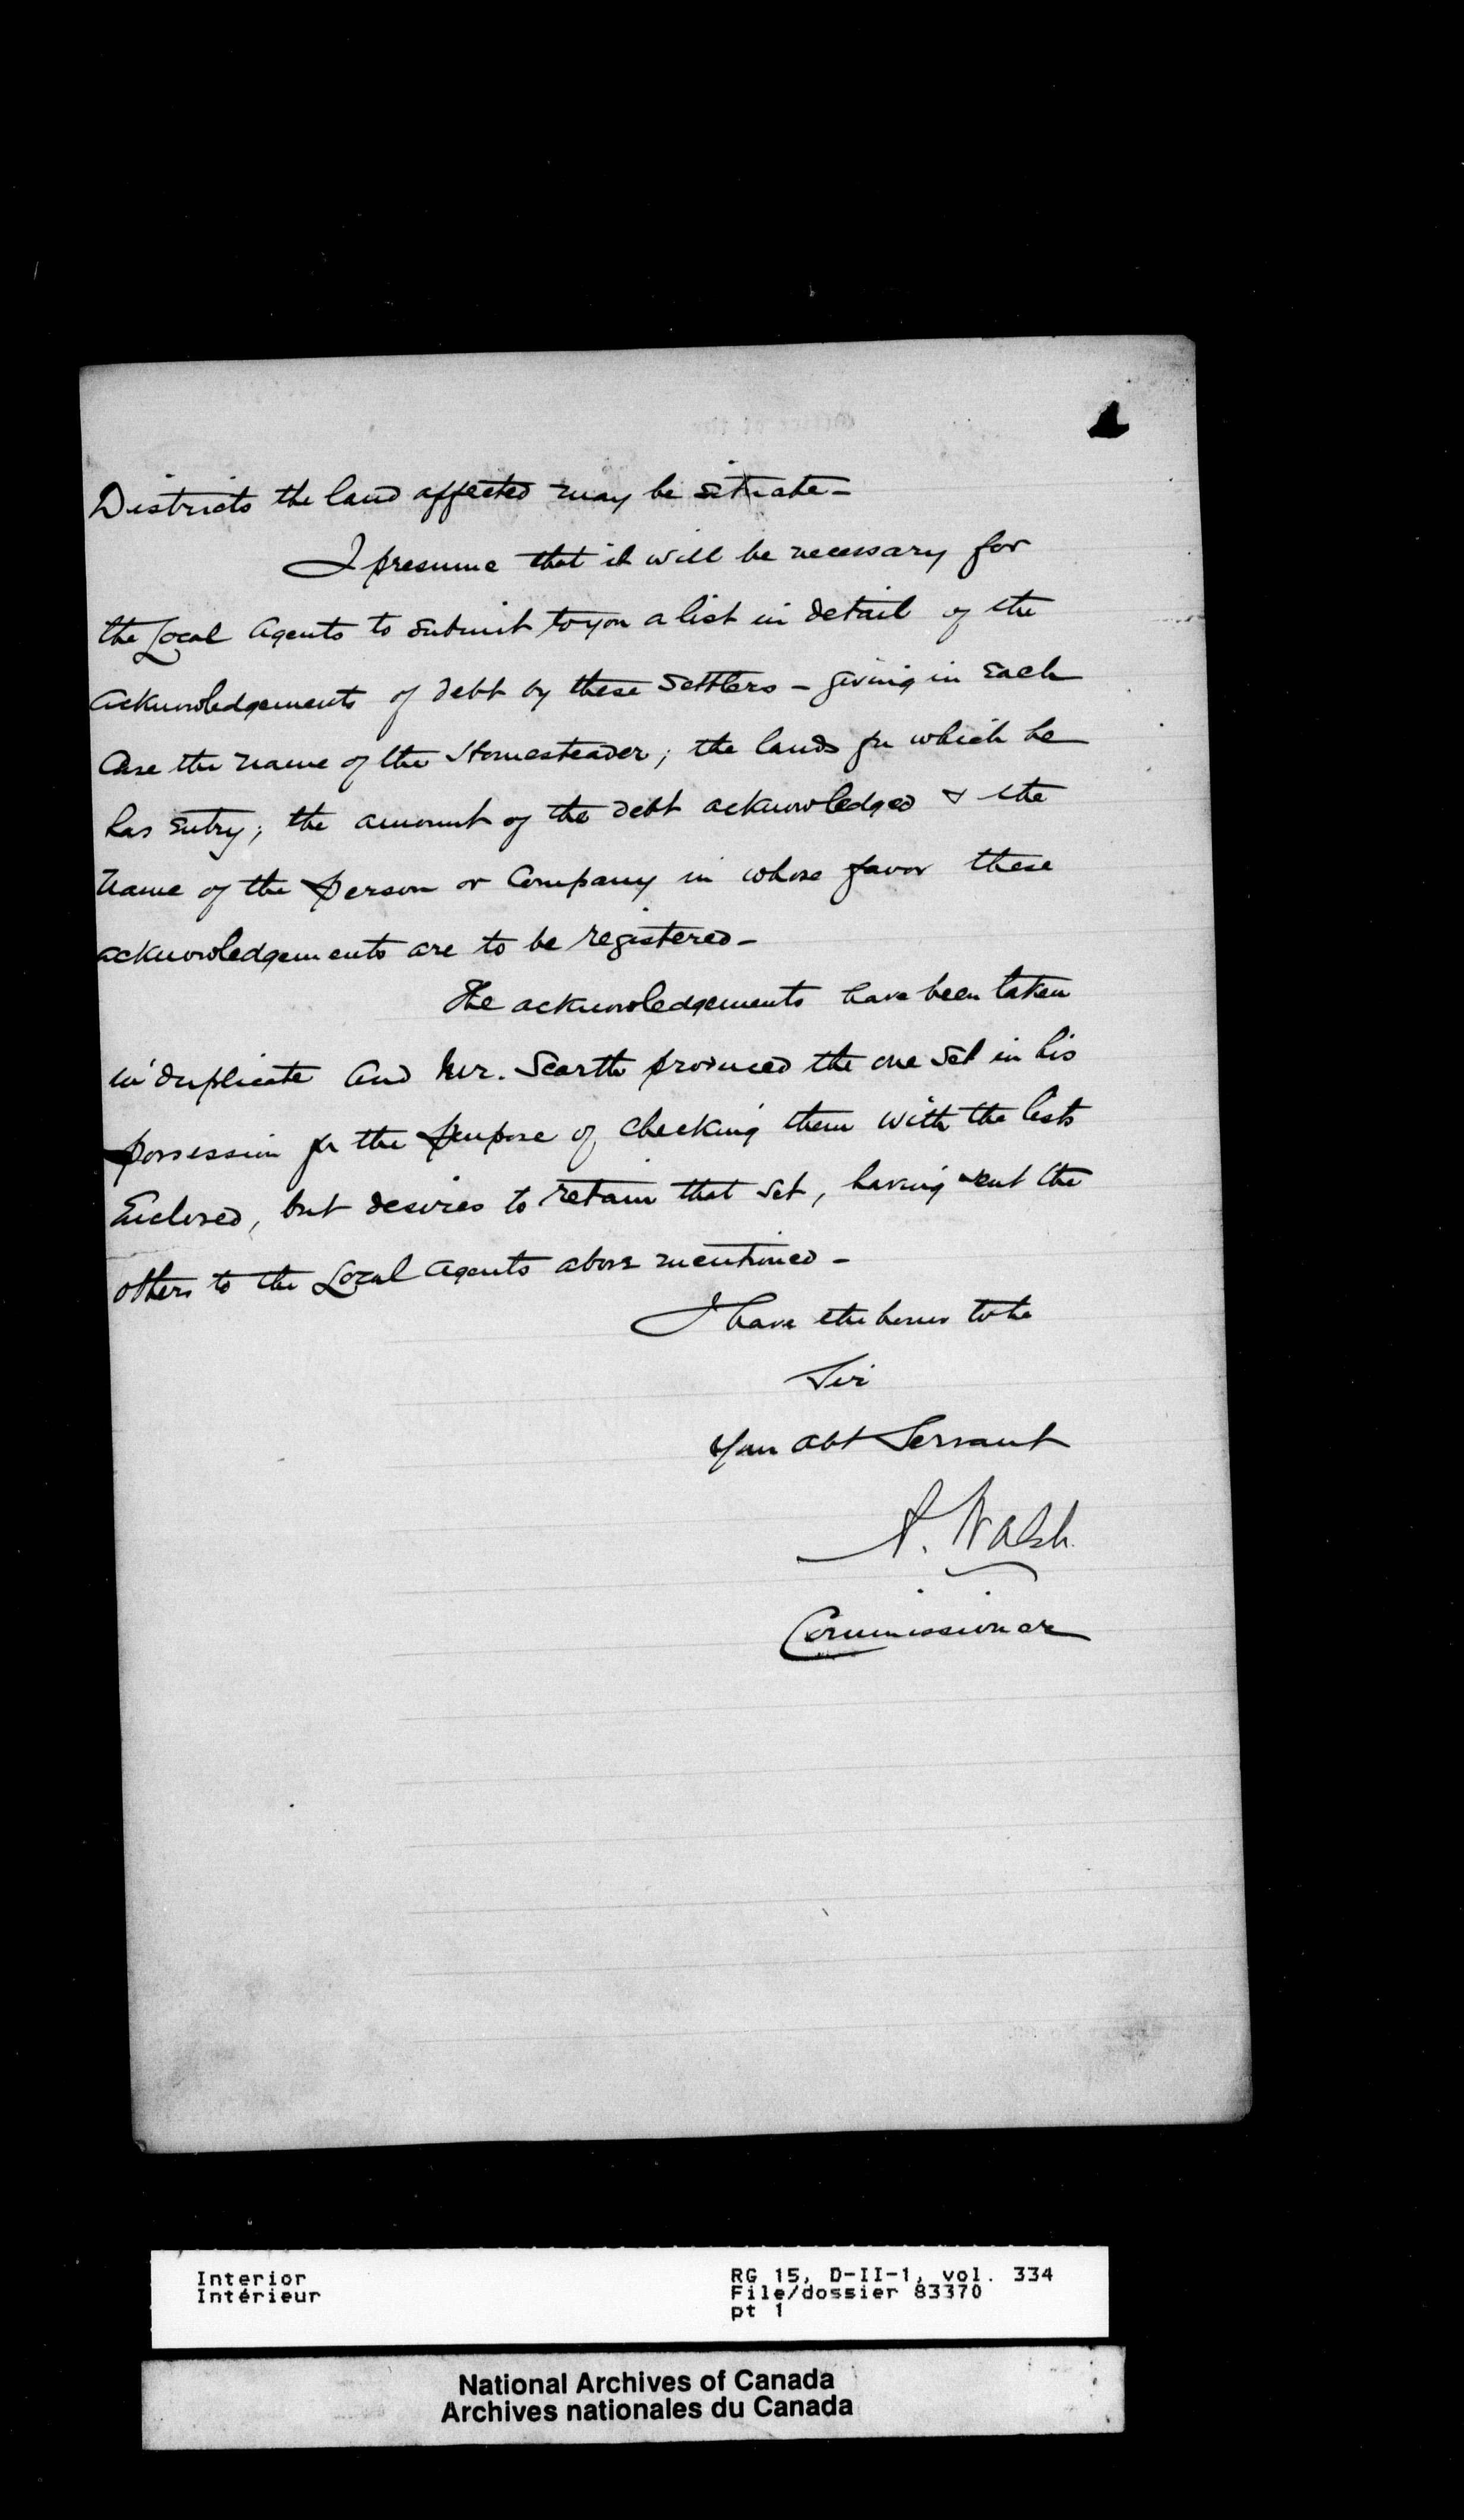 Districts the land affected may be situate -
I presume that it will be necessary for
the Local Agents to submit to you a list in detail of the
acknowledgements of debt by these Settlers - giving in Each
Case the name of the Homesteader; the lands for which he
has Entry; the amount of the debt acknowledged & the
name of the person or Company in whose favor these
acknowledgements are to be registered -
The acknowledgements have been taken
in duplicate and Mr. Scarth produced the one set in his
possession for the purpose of checking them with the lists
Enclosed, but desires to retain that set, having sent the
others to the Local Agents above mentioned -
I have the honor to be
Sir
Your Obt Servant
A. Walsh.
Commissioner
Interior
Intérieur
RG 15, D-II-1, vol. 334
File/dossier 83370
pt 1
National Archives of Canada
Archives nationales du Canada